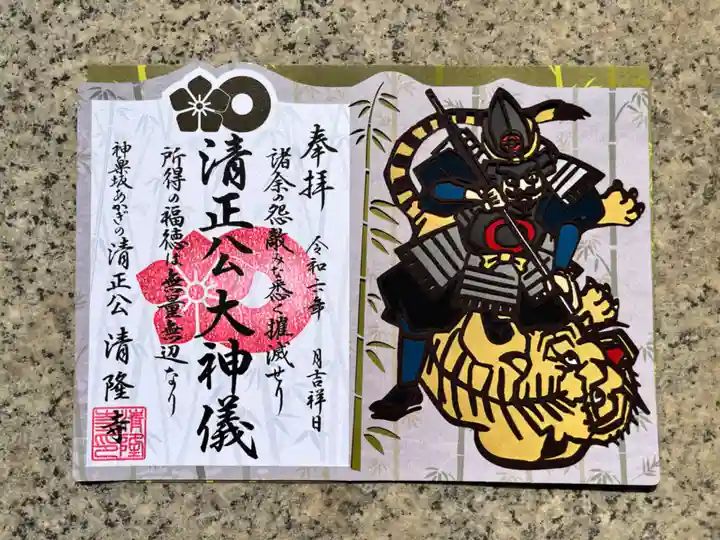 奉拝
令和六年　月吉祥日
諸余の怨敵みな悉く摧滅せり
清正公大神儀
所得の福徳は無量無辺なり
神楽坂あかぎの清正公 清隆寺
清隆